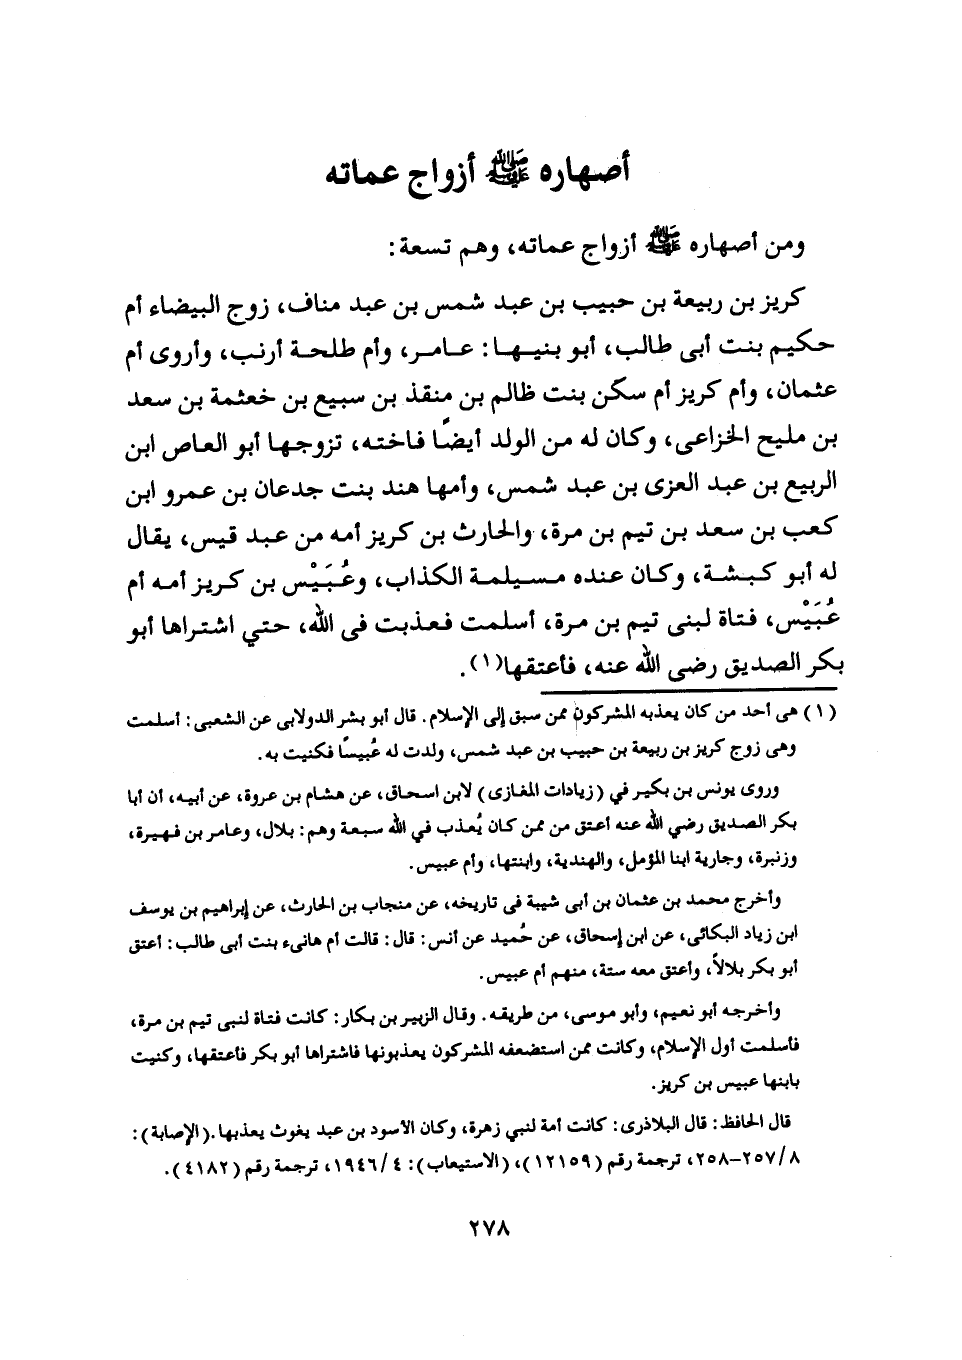 أصهاره ﷺ أزواج عماته
ومن أصهاره ﷺ أزواج عماته، وهم تسعة:
كريز بن ربيعة بن حبيب بن عبد شمس بن عبد مناف، زوج البيضاء أم
حكيم بنت أبى طالب، أبو بنيها: عامر، وأم طلحة أرنب، وأروى أم
عثمان، وأم كريز أم سكن بنت ظالم بن منقذ بن سبيع بن خعثمة بن سعد
بن مليح الخزاعى، وكان له من الولد أيضًا فاخته، تزوجها أبو العاص ابن
الربيع بن عبد العزى بن عبد شمس، وأمها هند بنت جدعان بن عمرو ابن
كعب بن سعد بن تيم بن مرة، والحارث بن كريز أمه من عبد قيس، يقال
له أبو كبشة، وكان عنده مسيلمة الكذاب، وعُبَيْس بن كريز أمه أم
عُبَيْس، فتاة لبنى تيم بن مرة، أسلمت فعذبت فى الله، حتي اشتراها أبو
بكر الصديق رضى الله عنه، فأعتقها(١).
(١) هى أحد من كان يعذبه المشركون ممن سبق إلى الإسلام. قال أبو بشر الدولابى عن الشعبى: أسلمت
وهى زوج كريز بن ربيعة بن حبيب بن عبد شمس، ولدت له عُبيسًا فكنيت به.
وروى يونس بن بكير في (زيادات المغازى) لابن اسحاق، عن هشام بن عروة، عن أبيه، أن أبا
بكر الصديق رضي الله عنه أعتق من ممن كان يُعذب في الله سبعة وهم: بلال، وعامر بن فهيرة،
وزنبرة، وجارية ابنا المؤمل، والهندية، وابنتها، وأم عبيس.
وأخرج محمد بن عثمان بن أبى شيبة فى تاريخه، عن منجاب بن الحارث، عن إبراهيم بن يوسف
ابن زياد البكائى، عن ابن إسحاق، عن حُميد عن أنس: قال: قالت أم هانىء بنت أبى طالب: أعتق
أبو بكر بلالاً، وأعتق معه ستة، منهم أم عبيس.
وأخرجه أبو نعيم، وأبو موسى، من طريقه. وقال الزبير بن بكار: كانت فتاة لنبى تيم بن مرة،
فأسلمت أول الإسلام، وكانت ممن استضعفه المشركون يعذبونها فاشتراها أبو بكر فأعتقها، وكنيت
بابنها عبيس بن كريز.
قال الحافظ: قال البلاذرى: كانت أمة لنبي زهرة، وكان الأسود بن عبد يغوث يعذبها. (الإصابة):
٨/ ٢٥٧-٢٥٨، ترجمة رقم (١٢١٥٩)، (الاستيعاب): ٤/ ١٩٤٦، ترجمة رقم (٤١٨٢).
٢٧٨